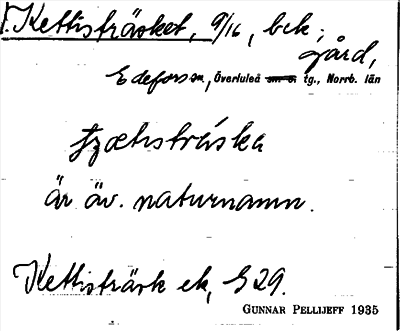 V. Kettisträsket, 9/16, bek.;
gård,
Edefors sn, Överluleå sn o. tg., Norrb. län
är äv. naturnamn.
Kettisträsk ek, G 29.
GUNNAR PELLIJEFF 1935